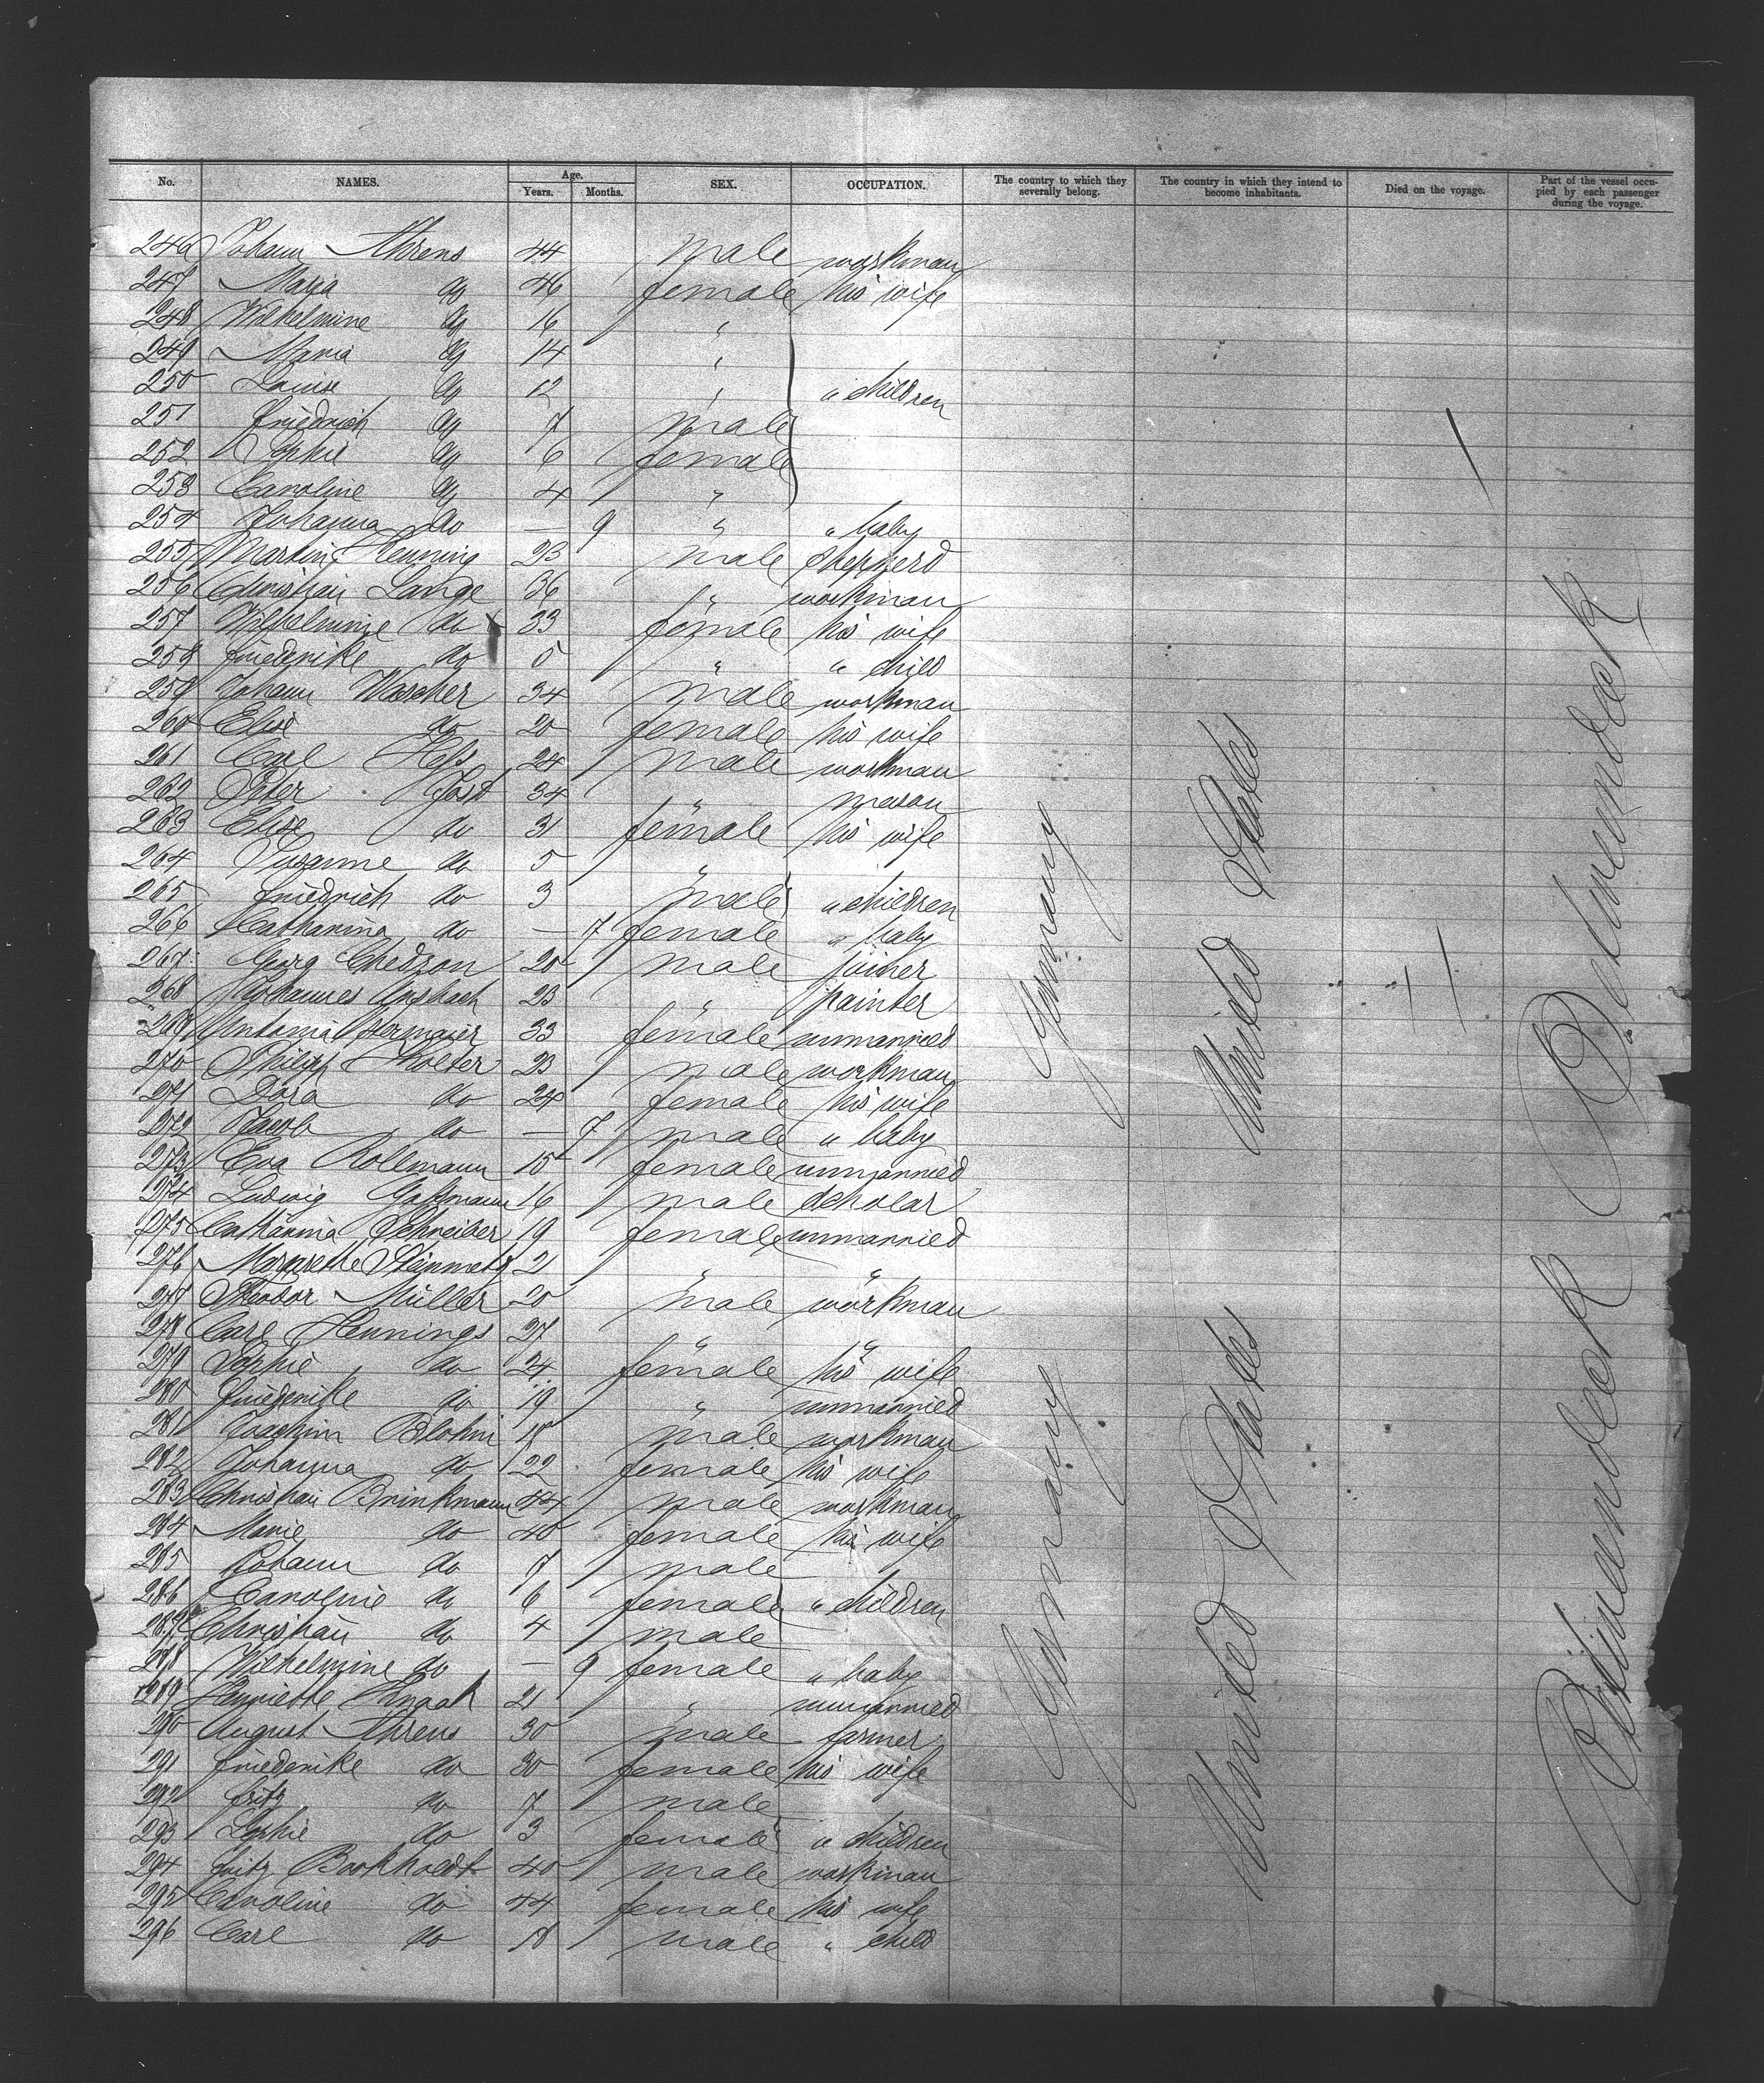 No. NAMES. Age. Years. Months. SEX. OCCUPATION. The country to which they severally belong. The country in which they intend to become inhabitants. Died on the voyage. Part of the vessel occupied by each passenger during the voyage.
246 Johann Ahrens 44 male workman
247 Maria do 46 female his wife
248 Wilhelmine do 16 "
249 Maria do 14 "
250 Louise do 12 " " children
251 Friedrich do 7 male
252 Sophie do 6 female
253 Caroline do 4 "
254 Johanna do — 9 " " baby
255 Martin Henning 23 male shepherd
256 Christian Lange 36 " workman
257 Wilhelmine do 33 female his wife
258 Friederike do 5 " " child
259 Johann 34 male workman
260 Elise do 20 female his wife
261 Carl Hess 24 male workman
262 Peter Jost 34 " mason
263 Elise do 31 female his wife
264 Susanne do 5 "
265 Friedrich do 3 male " children
266 Catharina do — 7 female " baby
267 Georg 20 male joiner
268 Johannes Ansbach 23 " painter
269 33 female unmarried
270 Philipp Holter 23 male workman
271 Dora do 24 female his wife
272 Jacob do — 7 male " baby
273 Eva Rollmann 15 female unmarried
274 Ludwig 16 male scholar
275 Catharina Schneider 19 female unmarried
276 Margrethe Steinmetz 21 " "
277 Theodor Müller 20 male workman
278 Carl Hennings 27 " "
279 Sophie do 24 female his wife
280 Friederike do 19 " unmarried
281 Joachim male workman
282 Johanna do 22 female his wife
283 Christian Brinkmann 44 male workman
284 Marie do 40 female his wife
285 Johann do 7 male
286 Caroline do 6 female " children
287 Christian do 4 male
288 Wilhelmine do — 9 female " baby
289 Henriette Knaak 21 " unmarried
290 August Ahrens 30 male farmer
291 Friederike do 30 female his wife
292 Fritz do 7 male
293 Sophie do 3 female " children
294 Fritz Borkholdt 40 male workman
295 Caroline do 44 female his wife
296 Carl do male " child
Germany
Germany
United States
United States